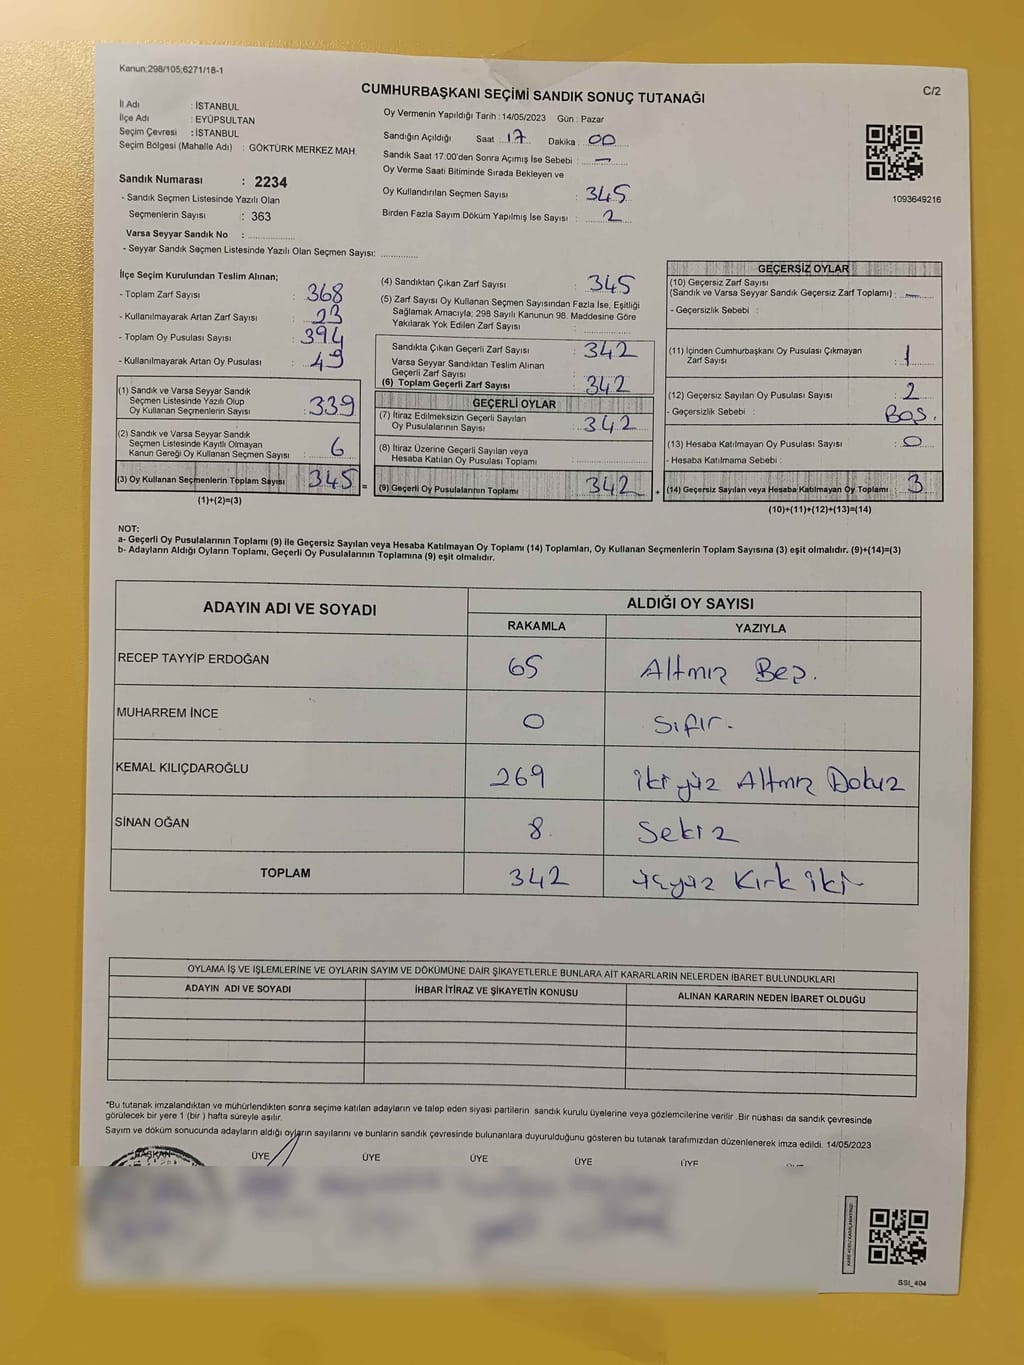 Kanun:298/105;6271/18-1
C/2
CUMHURBAŞKANI SEÇİMİ SANDIK SONUÇ TUTANAĞI
İl Adı : İSTANBUL
İlçe Adı : EYÜPSULTAN
Seçim Çevresi : İSTANBUL
Seçim Bölgesi (Mahalle Adı) : GÖKTÜRK MERKEZ MAH.
Sandık Numarası : 2234
- Sandık Seçmen Listesinde Yazılı Olan
Seçmenlerin Sayısı : 363
Varsa Seyyar Sandık No : ..............
- Seyyar Sandık Seçmen Listesinde Yazılı Olan Seçmen Sayısı: ............
Oy Vermenin Yapıldığı Tarih :14/05/2023 Gün : Pazar
Sandığın Açıldığı Saat : 17 Dakika : 00
Sandık Saat 17:00'den Sonra Açımış İse Sebebi : —
Oy Verme Saati Bitiminde Sırada Bekleyen ve
Oy Kullandırılan Seçmen Sayısı : 345
Birden Fazla Sayım Döküm Yapılmış İse Sayısı : 2
1093649216
İlçe Seçim Kurulundan Teslim Alınan;
- Toplam Zarf Sayısı : 368
- Kullanılmayarak Artan Zarf Sayısı : 23
- Toplam Oy Pusulası Sayısı : 394
- Kullanılmayarak Artan Oy Pusulası : 49
(1) Sandık ve Varsa Seyyar Sandık
Seçmen Listesinde Yazılı Olup
Oy Kullanan Seçmenlerin Sayısı : 339
(2) Sandık ve Varsa Seyyar Sandık
Seçmen Listesinde Kayıtlı Olmayan
Kanun Gereği Oy Kullanan Seçmen Sayısı : 6
(3) Oy Kullanan Seçmenlerin Toplam Sayısı : 345 =
(1)+(2)=(3)
(4) Sandıktan Çıkan Zarf Sayısı : 345
(5) Zarf Sayısı Oy Kullanan Seçmen Sayısından Fazla İse, Eşitliği
Sağlamak Amacıyla; 298 Sayılı Kanunun 98. Maddesine Göre
Yakılarak Yok Edilen Zarf Sayısı : ..............
Sandıkta Çıkan Geçerli Zarf Sayısı : 342
Varsa Seyyar Sandıktan Teslim Alınan
Geçerli Zarf Sayısı :
(6) Toplam Geçerli Zarf Sayısı : 342
GEÇERLİ OYLAR
(7) İtiraz Edilmeksizin Geçerli Sayılan
Oy Pusulalarının Sayısı : 342
(8) İtiraz Üzerine Geçerli Sayılan veya
Hesaba Katılan Oy Pusulası Toplamı : ..............
(9) Geçerli Oy Pusulalarının Toplamı : 342 +
GEÇERSİZ OYLAR
(10) Geçersiz Zarf Sayısı
(Sandık ve Varsa Seyyar Sandık Geçersiz Zarf Toplamı) : —
- Geçersizlik Sebebi :
(11) İçinden Cumhurbaşkanı Oy Pusulası Çıkmayan
Zarf Sayısı : 1
(12) Geçersiz Sayılan Oy Pusulası Sayısı : 2
- Geçersizlik Sebebi : Boş.
(13) Hesaba Katılmayan Oy Pusulası Sayısı : 0
- Hesaba Katılmama Sebebi :
(14) Geçersiz Sayılan veya Hesaba Katılmayan Oy Toplamı : 3
(10)+(11)+(12)+(13)=(14)
NOT:
a- Geçerli Oy Pusulalarının Toplamı (9) ile Geçersiz Sayılan veya Hesaba Katılmayan Oy Toplamı (14) Toplamları, Oy Kullanan Seçmenlerin Toplam Sayısına (3) eşit olmalıdır. (9)+(14)=(3)
b- Adayların Aldığı Oyların Toplamı, Geçerli Oy Pusulalarının Toplamına (9) eşit olmalıdır.
ADAYIN ADI VE SOYADI
ALDIĞI OY SAYISI
RAKAMLA YAZIYLA
RECEP TAYYİP ERDOĞAN 65 Altmış Beş.
MUHARREM İNCE 0 Sıfır.
KEMAL KILIÇDAROĞLU 269 iki yüz Altmış Dokuz
SİNAN OĞAN 8. Sekiz
TOPLAM 342 üçyüz Kırk iki
OYLAMA İŞ VE İŞLEMLERİNE VE OYLARIN SAYIM VE DÖKÜMÜNE DAİR ŞİKAYETLERLE BUNLARA AİT KARARLARIN NELERDEN İBARET BULUNDUKLARI
ADAYIN ADI VE SOYADI İHBAR İTİRAZ VE ŞİKAYETİN KONUSU ALINAN KARARIN NEDEN İBARET OLDUĞU
*Bu tutanak imzalandıktan ve mühürlendikten sonra seçime katılan adayların ve talep eden siyasi partilerin sandık kurulu üyelerine veya gözlemcilerine verilir .Bir nüshası da sandık çevresinde
görülecek bir yere 1 (bir ) hafta süreyle asılır.
Sayım ve döküm sonucunda adayların aldığı oyların sayılarını ve bunların sandık çevresinde bulunanlara duyurulduğunu gösteren bu tutanak tarafımızdan düzenlenerek imza edildi. 14/05/2023
BAŞKAN ÜYE ÜYE ÜYE ÜYE ÜYE
SSI_404